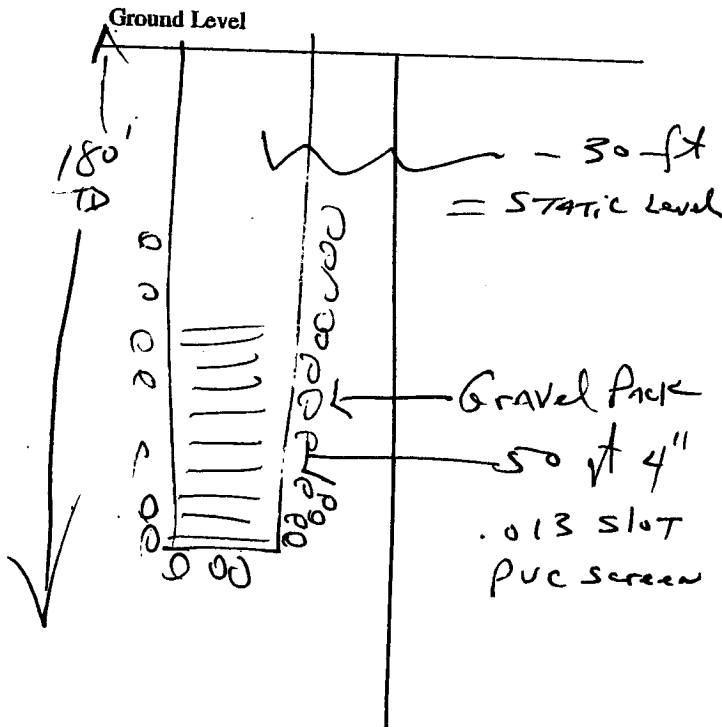 Ground Level
180'
TD
- 30 ft
= STATIC Level
Gravel Pack
50 ft 4"
.013 Slot
PVC screen